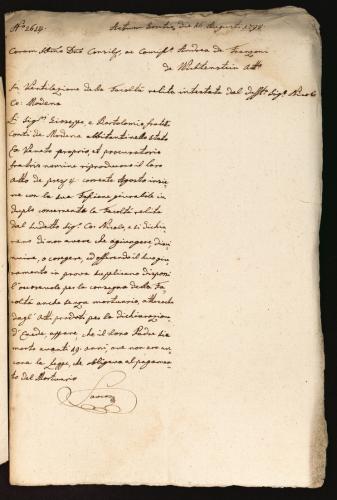 N.º 2614.
Actum Goritiæ die 16 Augusti 1794
Coram Illmo Dno Consilio, ac Consess. Andrea de Franzoni
de Wichtenstein Att.
In Ventilazione della Facoltà relitta intestata dal defft. Sig.r Nicolò
Co: Modena
I Sig.ri Giuseppe, e Bartolomio fratelli
Conti de Modena abbitanti nello Stato
Veneto proprio, et procuratorio
fratris nomine riproducono il loro
Atto de prez. 4. corrente Agosto insie-
me con la sua Fassione giurabile in
duplo concernente la Facoltà relitta
dal sudetto Sig.r Co: Nicolò, e si dichia-
rano di non avere che aggiongere, dimi-
nuire, o coregere, ed offrendo il suo giu-
ramento in prova supplicano disponi
l'occorrente per la consegna della Fa-
coltà anche senza mortuario, attesochè
dagl'Atti prodotti per la dichiarazione
d'Erede appare, che il loro Padre sia
morto avanti 49. anni, ove non era an-
cora la Legge, che obligava al pagamen-
to del Mortuario